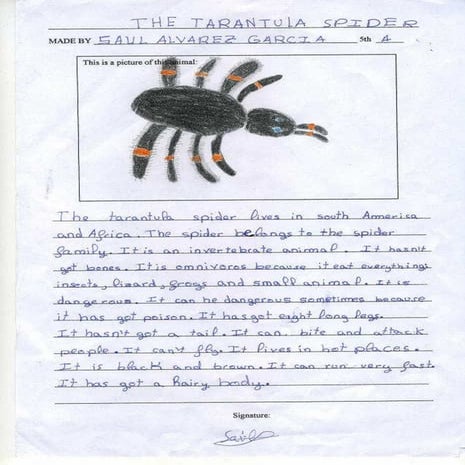 THE TARANTULA SPIDER
MADE BY SAUL ALVAREZ GARCIA 5th A
This is a picture of this animal:
The tarantula spider lives in south America
and Africa. The spider belongs to the spider
family. It is an invertebrate animal. It hasn't
got bones. It is omnivoros because it eat everything:
insects, lizard, frogs and small animal. It is
dangerous. It can he dangerous sometimes because
it has got poison. It has got eight long legs.
It hasn't got a tail. It can bite and attack
people. It can't fly. It lives in hot places.
It is black and brown. It can run very fast.
It has got a hairy body.
Signature:
Saúl